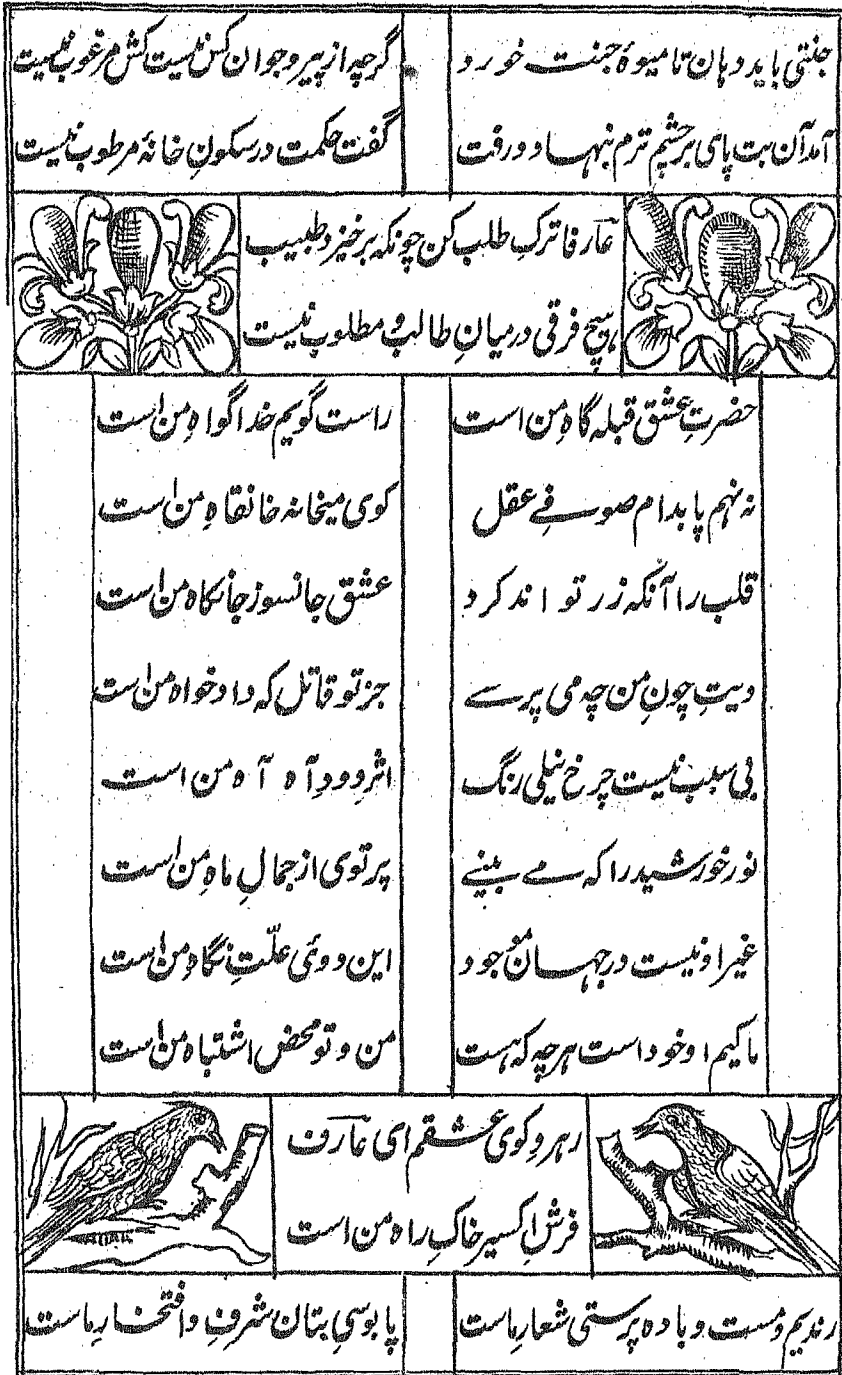 جنتی باید دهان تا میوهٔ جنت خورد
گرچه از پیر و جوان کس نیست کش مرغوب نیست
آمد آن بت پای بر چشم ترم ننهاد و رفت
گفت حکمت در سکونِ خانهٔ مرطوب نیست
عارفا ترکِ طلب کن چونکه برخیزد طبیب
هیچ فرقی درمیانِ طالب و مطلوب نیست
حضرتِ عشق قبله گاهِ من است
راست گویم خدا گواهِ من است
نه نهم پا بدام صوفے عقل
کوی میخانه خانقاهِ من است
قلب را آنکه زر تواند کرد
عشق جانسوز جانکاه من است
دیتِ چون من چه می پرسے
جز تو قاتل که دادخواه من است
بی سبب نیست چرخ نیلی رنگ
اثرِ دودِ آه آه من است
نور خورشید را که مے بینے
پرتوی از جمالِ ماهِ من است
غیر او نیست در جهان موجود
این دوئی علّتِ نگاهِ من است
ما کیم او خود است هرچه که هست
من و تو محض اشتباه من است
رهروِ کوی عشقم ای عارف
فرشِ اکسیر خاکِ راه من است
رندیم و مست و باده پرستی شعارِ ماست
پابوسیِ بتان شرف و افتخارِ ماست